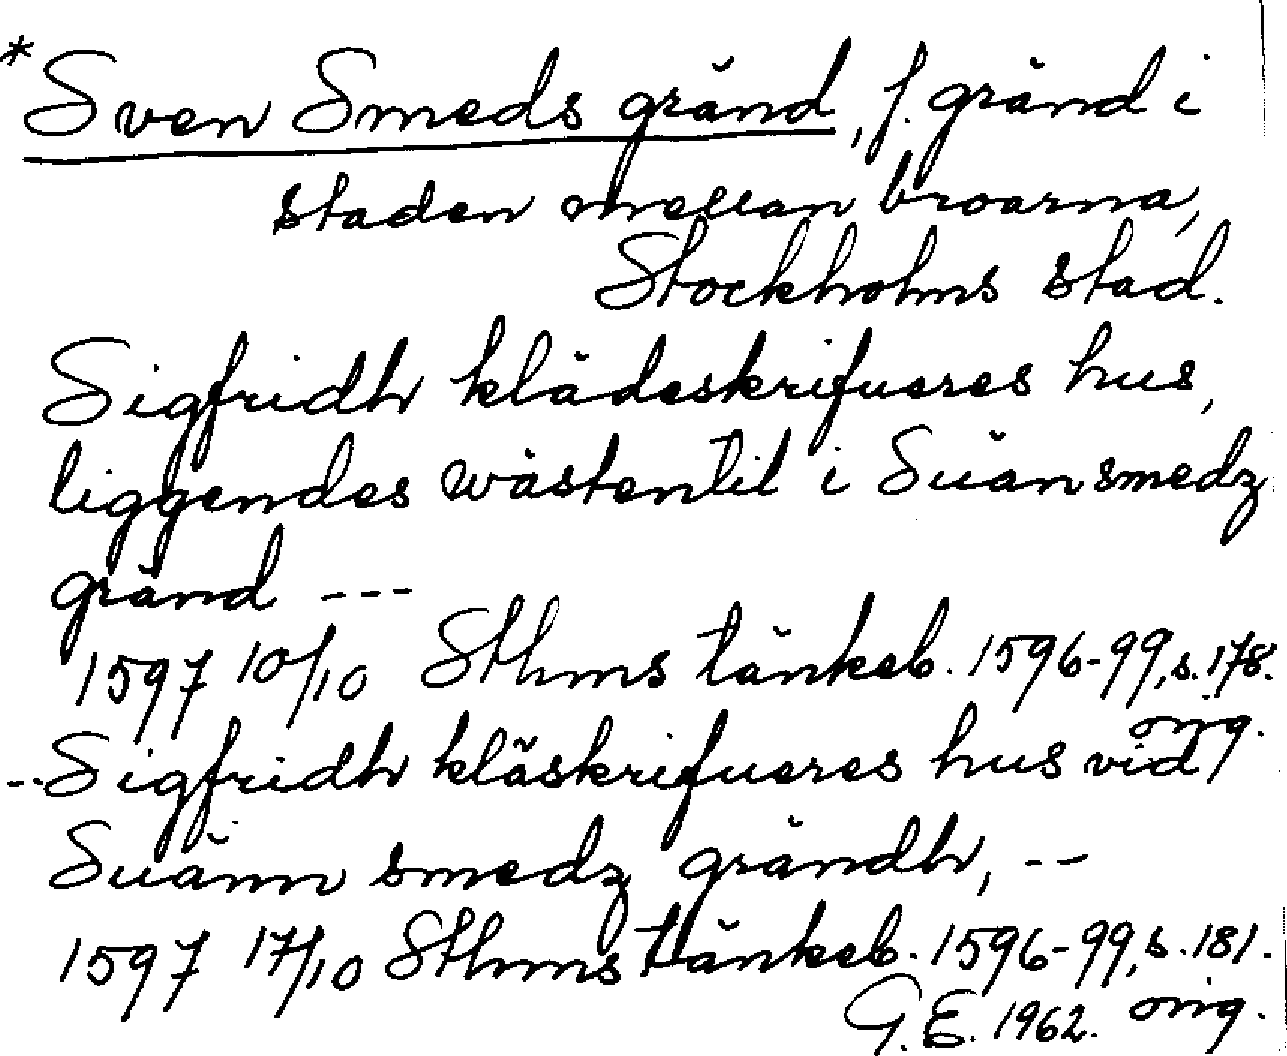 *Sven Smeds gränd, f. gränd i
staden mellan broarna,
Stockholms stad.
Sigfridh klädeskrifueres hus,
liggendes wästentil i Suänsmedz
gränd ---
1597 10/10 Sthms tänkeb. 1596-99, s. 178.
orig.
--Sigfridh kläskrifueres hus vid
Suänn smedz grändh, --
1597 17/10 Sthms tänkeb. 1596-99, s. 181.
orig.
G.E. 1962.